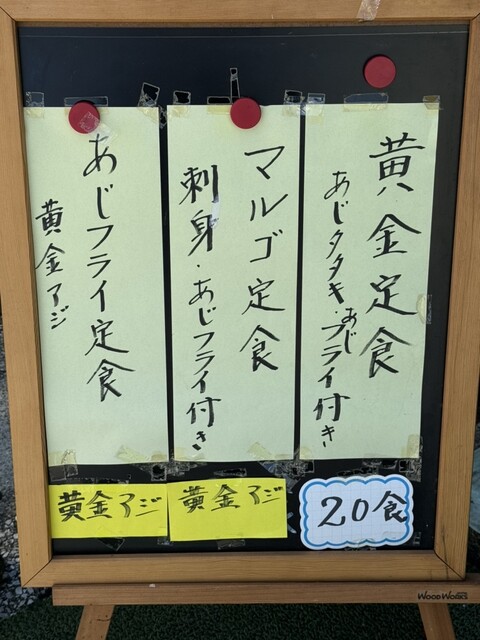 黄金定食
あじタタキ・あじフライ付き
マルゴ定食
刺身・あじフライ付き
あじフライ定食
黄金アジ
黄金アジ
黄金アジ
20食
WOODWORKS